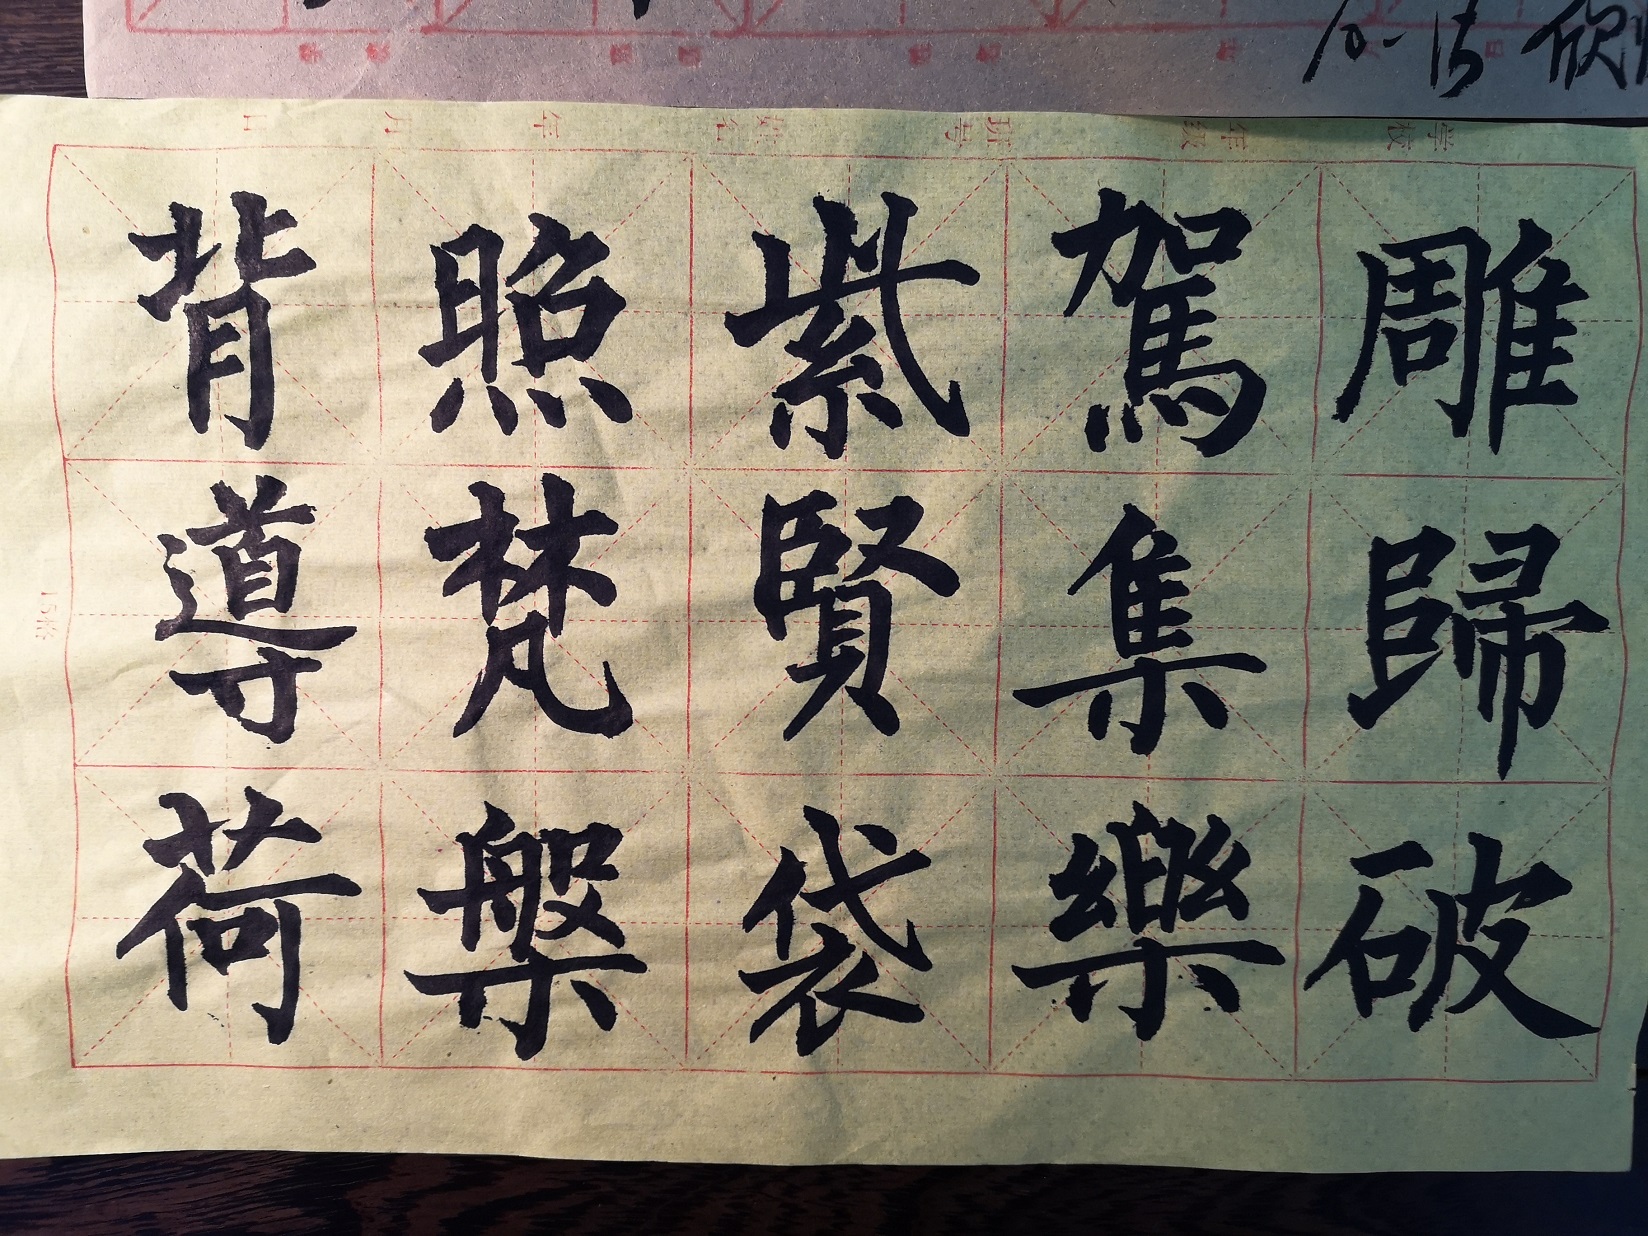 雕歸破
駕集樂
紫賢袋
照梵槃
背導荷
学校
年级
班号
姓名
年
月
日